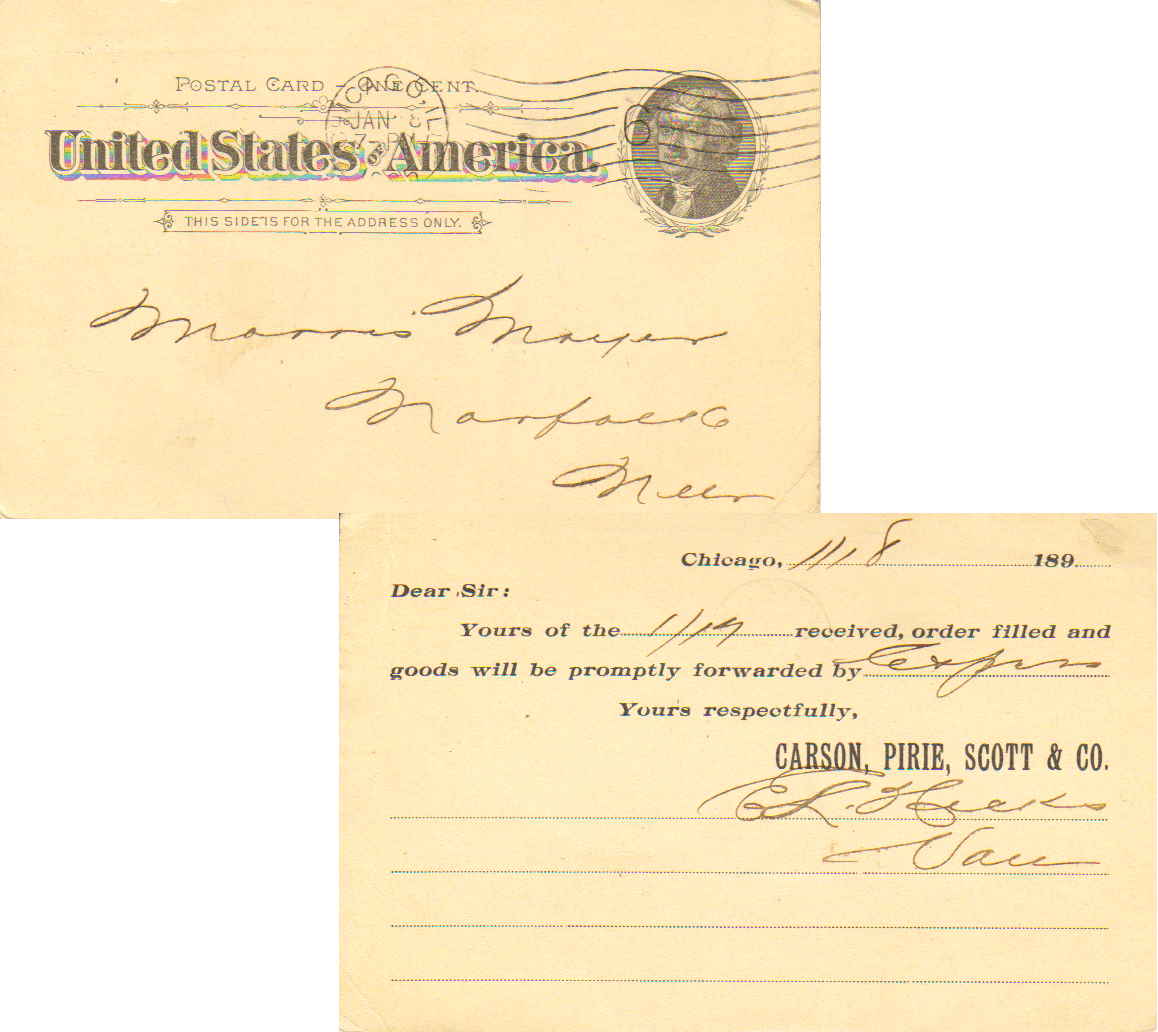 POSTAL CARD – ONE CENT.
CHICAGO, ILL
JAN 8
7-PM
6
United States of America.
THIS SIDE IS FOR THE ADDRESS ONLY.
Morris Mayer
Norfolk
Nebr
Chicago, 1/18 189
Dear Sir:
Yours of the 1/17 received, order filled and
goods will be promptly forwarded by Express
Yours respectfully,
CARSON, PIRIE, SCOTT & CO.
E. L. Hecks